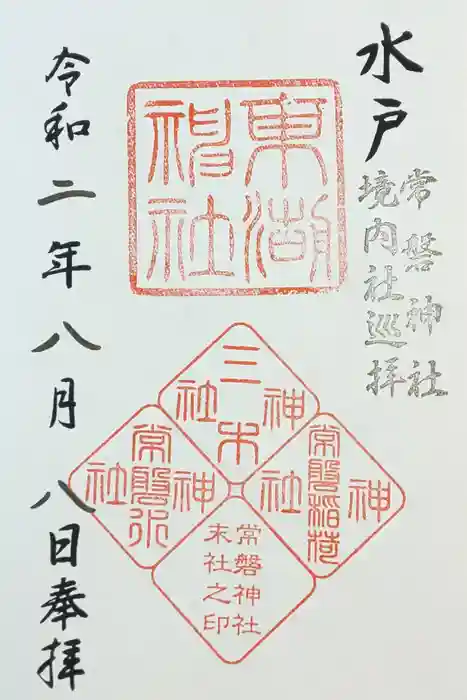 水戸
常磐神社
境内社巡拝
東湖
神社
三木
神社
常磐稲荷
神社
常磐水
神社
常磐神社
末社之印
令和二年八月八日奉拝